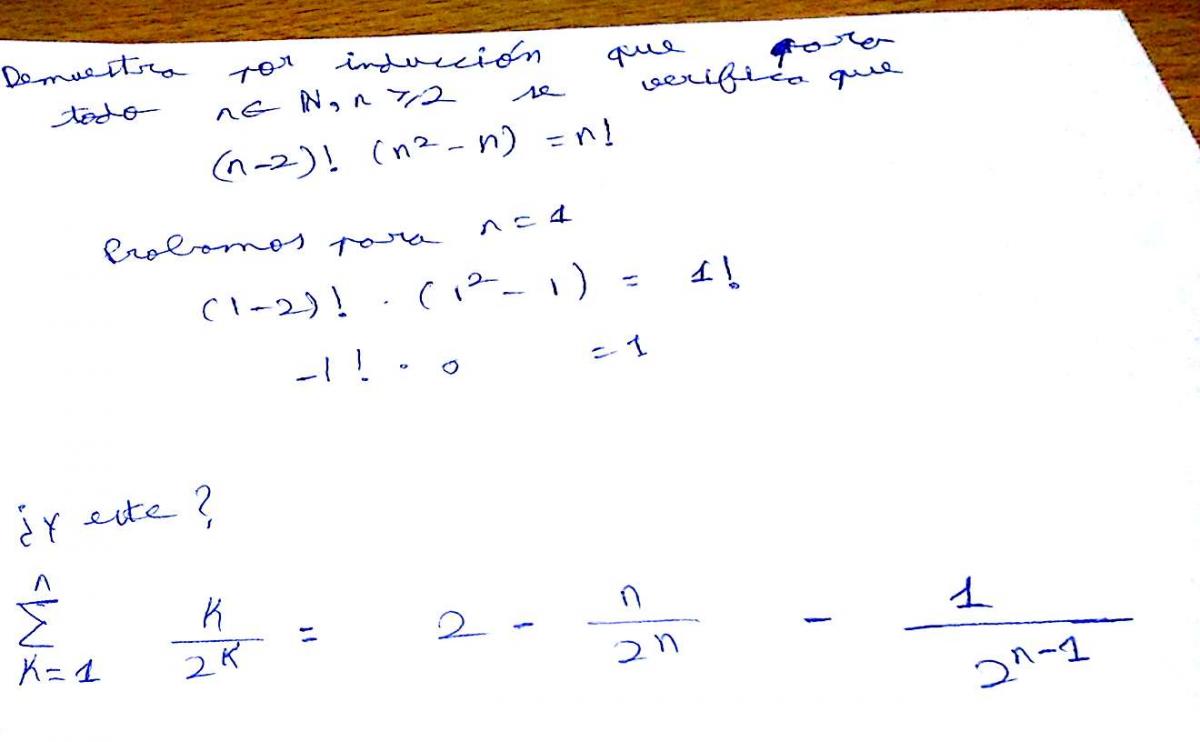 Demuestra por inducción que para
todo n∈ℕ, n≥2 se verifica que
(n-2)! (n² - n) = n!
Probamos para n = 1
(1-2)! · (1² - 1) = 1!
-1! · 0 = 1
¿Y este?
∑_{K=1}^{n} K/2^K = 2 - n/2^n - 1/2^{n-1}